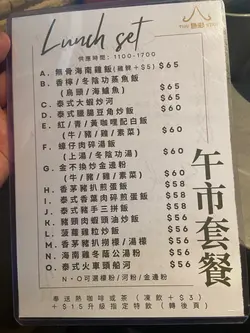 Lunch set
供應時間：1100-1700
A. 無骨海南雞飯(雞髀+$5) $65
B. 香檸/冬陰功蒸魚飯 $65
(烏頭/海鱸魚)
C. 泰式大蝦炒河 $65
D. 泰式臘腸豆角炒飯 $60
E. 紅/青/黃咖喱配白飯
(牛/豬/雞/素菜) $60
F. 蠔仔肉碎湯飯
(上湯/冬陰功湯) $60
G. 金不換炒金邊粉
(牛/豬/雞/素菜) $60
H. 香茅豬扒煎蛋飯 $58
I. 泰式香葉肉碎煎蛋飯 $58
J. 泰式豬手三拼飯 $58
K. 豬頸肉蝦頭油炒飯 $56
L. 菠蘿雞粒炒飯 $56
M. 香茅豬扒撈檬/湯檬 $56
N. 海南雞冬蔭公湯粉 $56
O. 泰式火車頭船河 $56
N-O可選檬粉/河粉/金邊粉
午市套餐
奉送熱咖啡或茶(凍飲+$3)
+$15升級指定特飲(轉後頁)